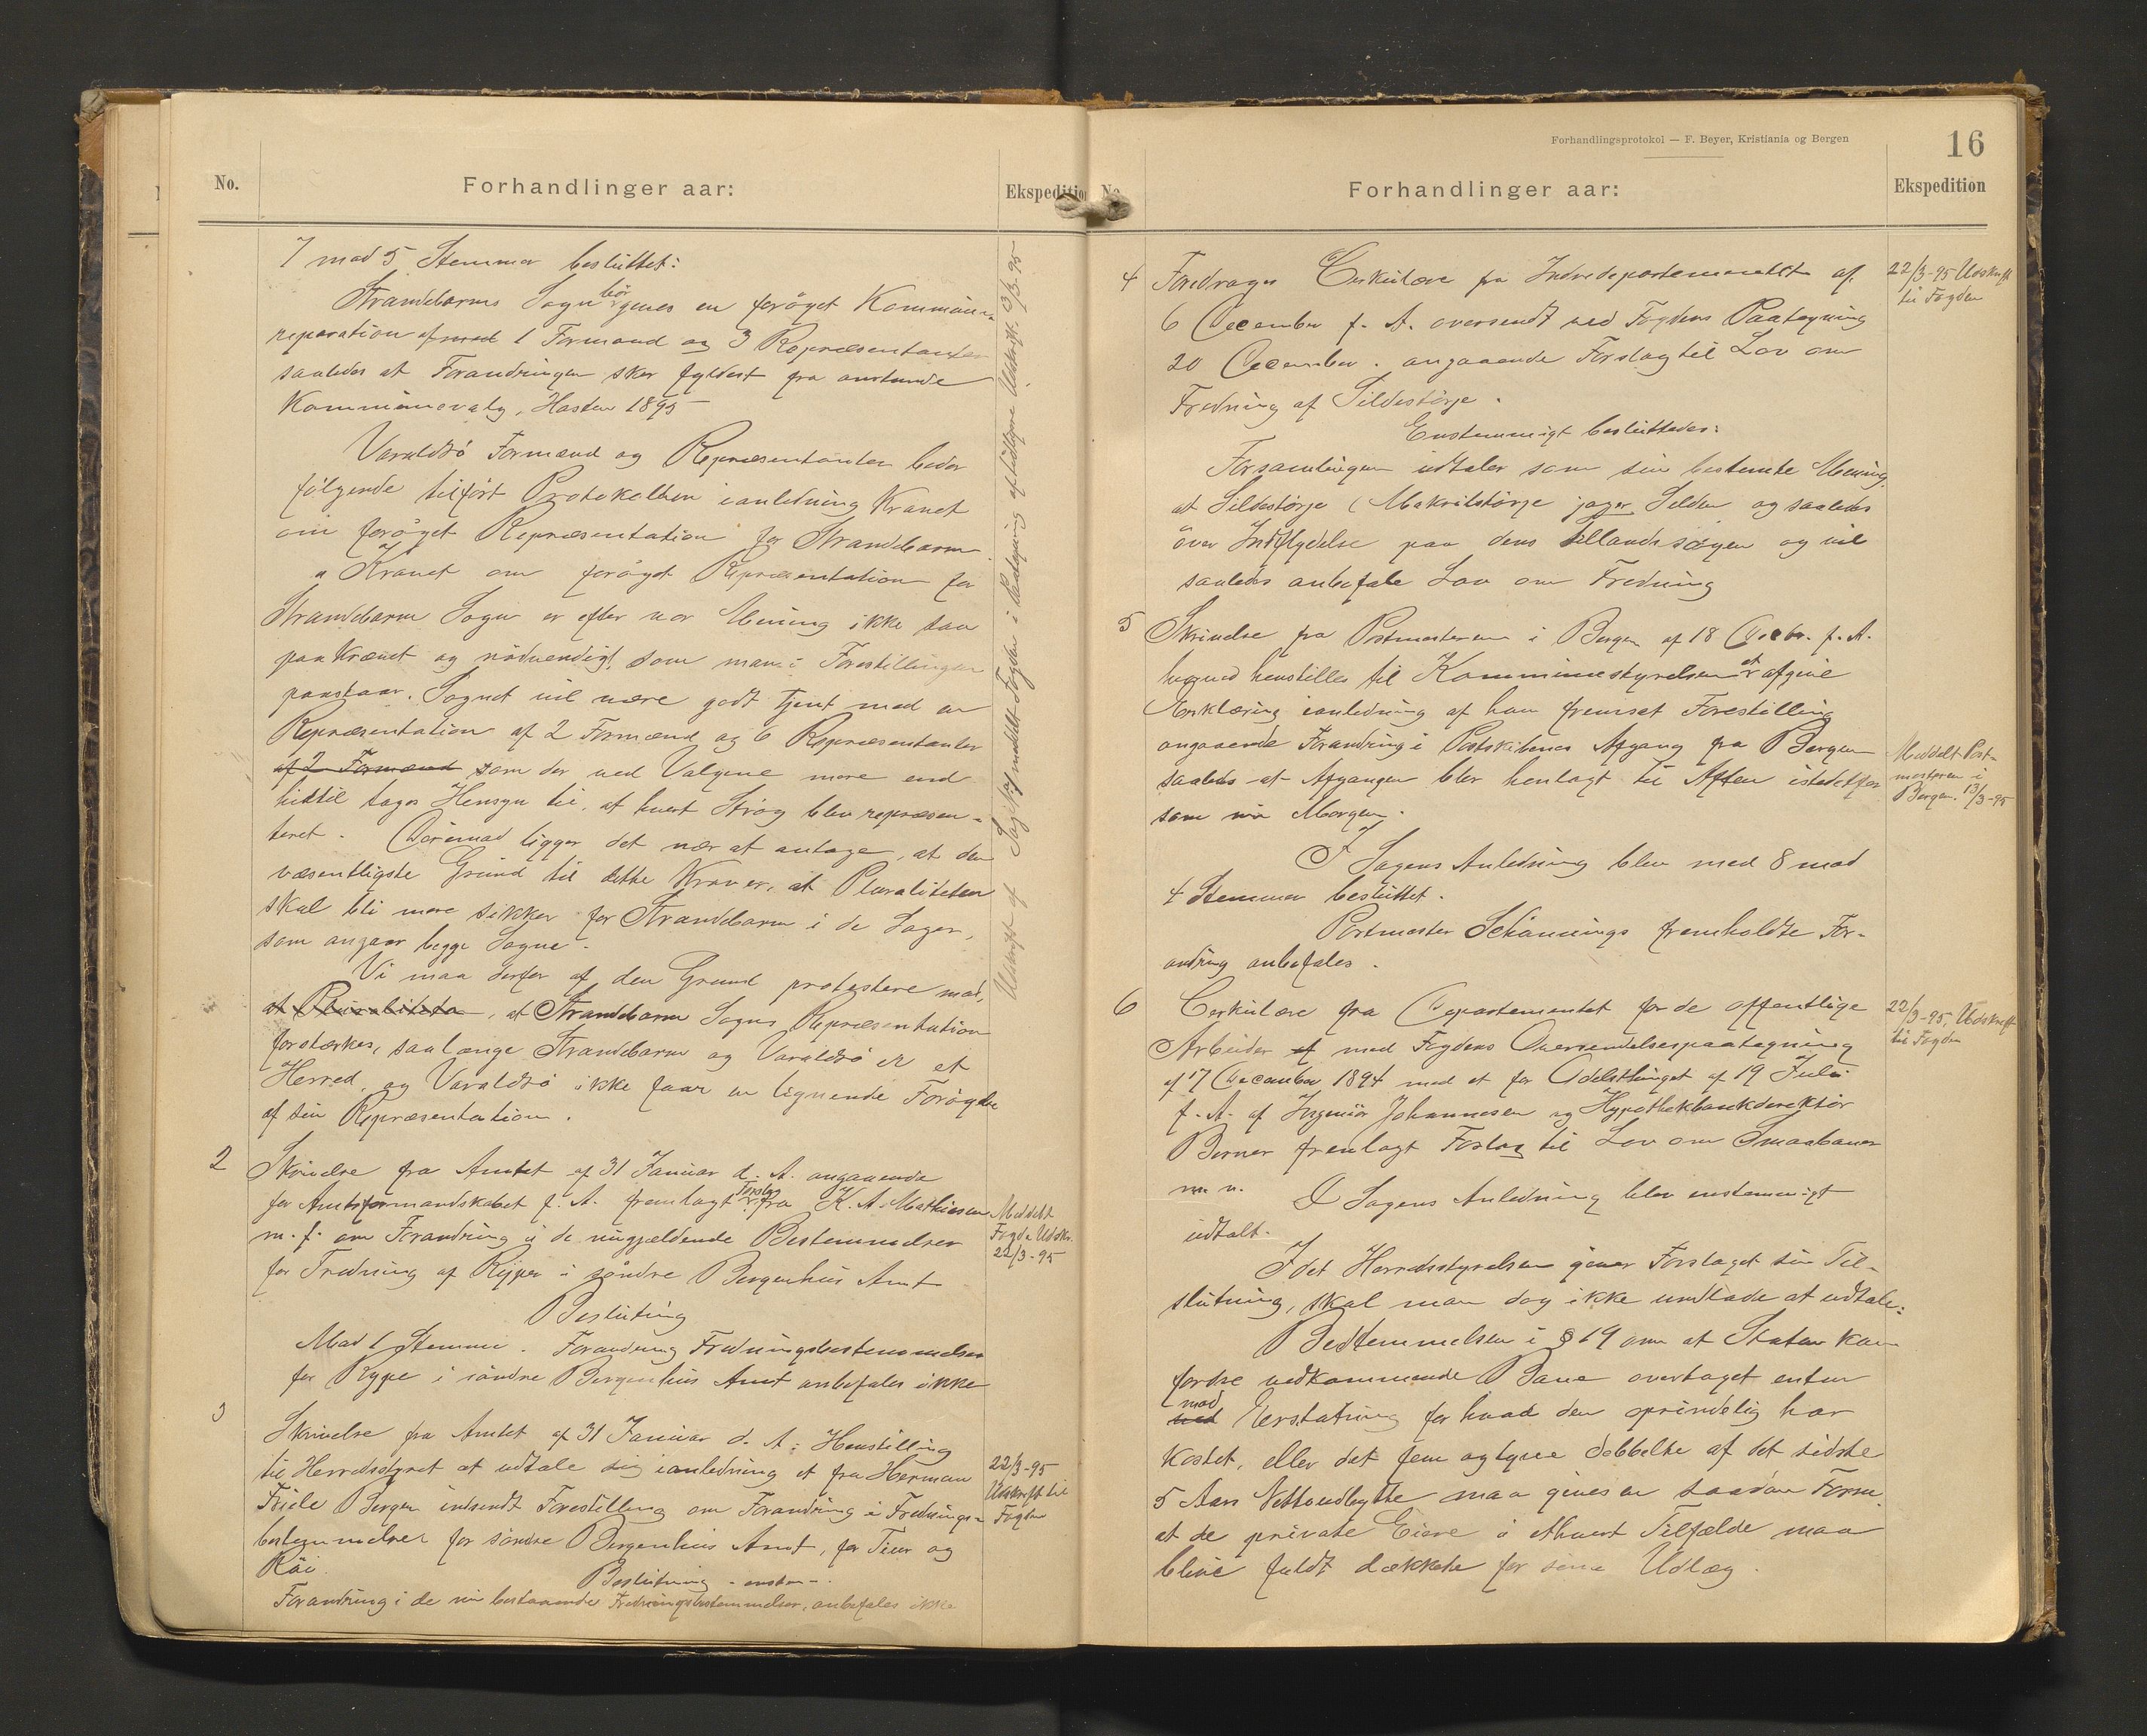 No.
Forhandlinger aar:
Ekspedition
7 mod 5 Stemmer besluttet:
Strandebarms Sogn bör gives en foröget Kommune-
repræsentation af med 1 Formand og 3 Repræsentanter
saaledes at Forandringen sker fyldest fra anstunde
Kommunevalg, Høsten 1895
Varaldsö Formænd og Repræsentanter beder
følgende tilført Protokollen i anledning Kravet
om forøget Repræsentation for Strandebarm
" Kravet om forøget Repræsentation for
Strandebarm Sogn er efter vor Mening ikke saa
paakrævet og nödvendigt som man i Forestillingen
paastaar. Sognet vil være godt tjent med en
Repræsentation af 2 Formænd og 6 Repræsentanter
af 2 Formænd som der ved Valgene mere end
hidtil tages Hensyn til, at hvert Strög blev repræsen-
teret. Derimod ligger det nær at antage, at den
væsentligste Grund til dette Krav er, at Pluraliteten
skal bli mere sikker for Strandebarm i de Sager,
som angaar begge Sogne.
Vi maa derfor af den Grund protestere mod,
at Pluraliteten, at Strandebarm Sogns Repræsentation
forstærkes, saalænge Strandebarm og Varaldsö er et
Herred, og Varaldsö ikke faar en lignende Forögelse
af sin Repræsentation.
Udskrift af Sag meddelt Fogden i Paategning af tidligere Udskrift 13/3-95
2
Skrivelse fra Amtet af 31 Januar d. A. angaaende
for Amtsformandskabet f. A. fremlagt Forslag fra K. A. Mathiesen
m. f. om Forandring i de nugjældende Bestemmelser
for Fredning af Ryper i söndre Bergenhus Amt
Meddelt
Fogden Udskr.
22/3-95
Beslutning
Mod 1 Stemme. Forandring Fredningsbestemmelser
for Rype i söndre Bergenhus Amt anbefales ikke
3
Skrivelse fra Amtet af 31 Januar d. A: Henstilling
til Herredsstyret at udtale sig i anledning et fra Herman
Friele Bergen indsendt Forestilling om Forandring i Frednings-
bestemmelser for söndre Bergenhus Amt, for Tiur og
Röi.
22/3-95
Udskrift til
Fogden
Beslutning - enstem-.
Forandring i de nu bestaaende Fredningsbestemmelser, anbefales ikke
Forhandlingsprotokol — F. Beyer, Kristiania og Bergen
16
No.
Forhandlinger aar:
Ekspedition
4 Foredroges Cirkulære fra Indredepartementet af
6 December f. A. oversendt med Fogdens Paategning
20 December. angaaende Forslag til Lov om
Fredning af Sildestörje.
22/3-95 Udskrift
til Fogden
Enstemmigt besluttedes:
Forsamlingen udtaler som sin bestemte Mening,
at Sildestörje (Makrilstörje jager Silden og saaledes
över Indflydelse paa dens Tillandssögen og vil
saaledes anbefale Lov om Fredning
5 Skrivelse fra Postmesteren i Bergen af 18 Decbr. f. A.
hvorved henstilles til Kommunestyrelsen at afgive
Erklæring i anledning af ham fremsat Forestilling
angaaende Forandring i Postskibenes Afgang fra Bergen
saaledes at Afgangen blev henlagt til Aften istedetfor
som nu Morgen.
Meddelt Post-
mesteren i
Bergen. 13/3-95
I Sagens Anledning blev med 8 mod
4 Stemmer besluttet.
Postmester Schånnings fremholdte For-
andring anbefales.
6 Cirkulære fra Departementet for de offentlige
Arbeider af med Fogdens Oversendelsespaategning
af 17 December 1894 med et for Odelsthinget af 19 Juli
f. A. af Ingeniör Johannesen og Hypothekbankdirektör
Berner fremlagt Forslag til Lov om Smaabaner
m. v.
22/3-95, Udskrift
til Fogden
I Sagens Anledning blev enstemmigt
udtalt.
Idet Herredsstyrelsen giver Forslaget sin Til-
slutning, skal man dog ikke undlade at udtale:
Bestemmelsen i § 19 om at Staten kan
fordre vedkommende Bane overtaget enten
mod ved Erstatning for hvad den oprindelig har
kostet, eller det fem og tyve dobbelte af det sidste
5 Aars Nettoudbytte maa gives en saadan Form,
at de private Eiere i ethvert Tilfælde maa
blive fuldt dækkede for sine Udlæg.